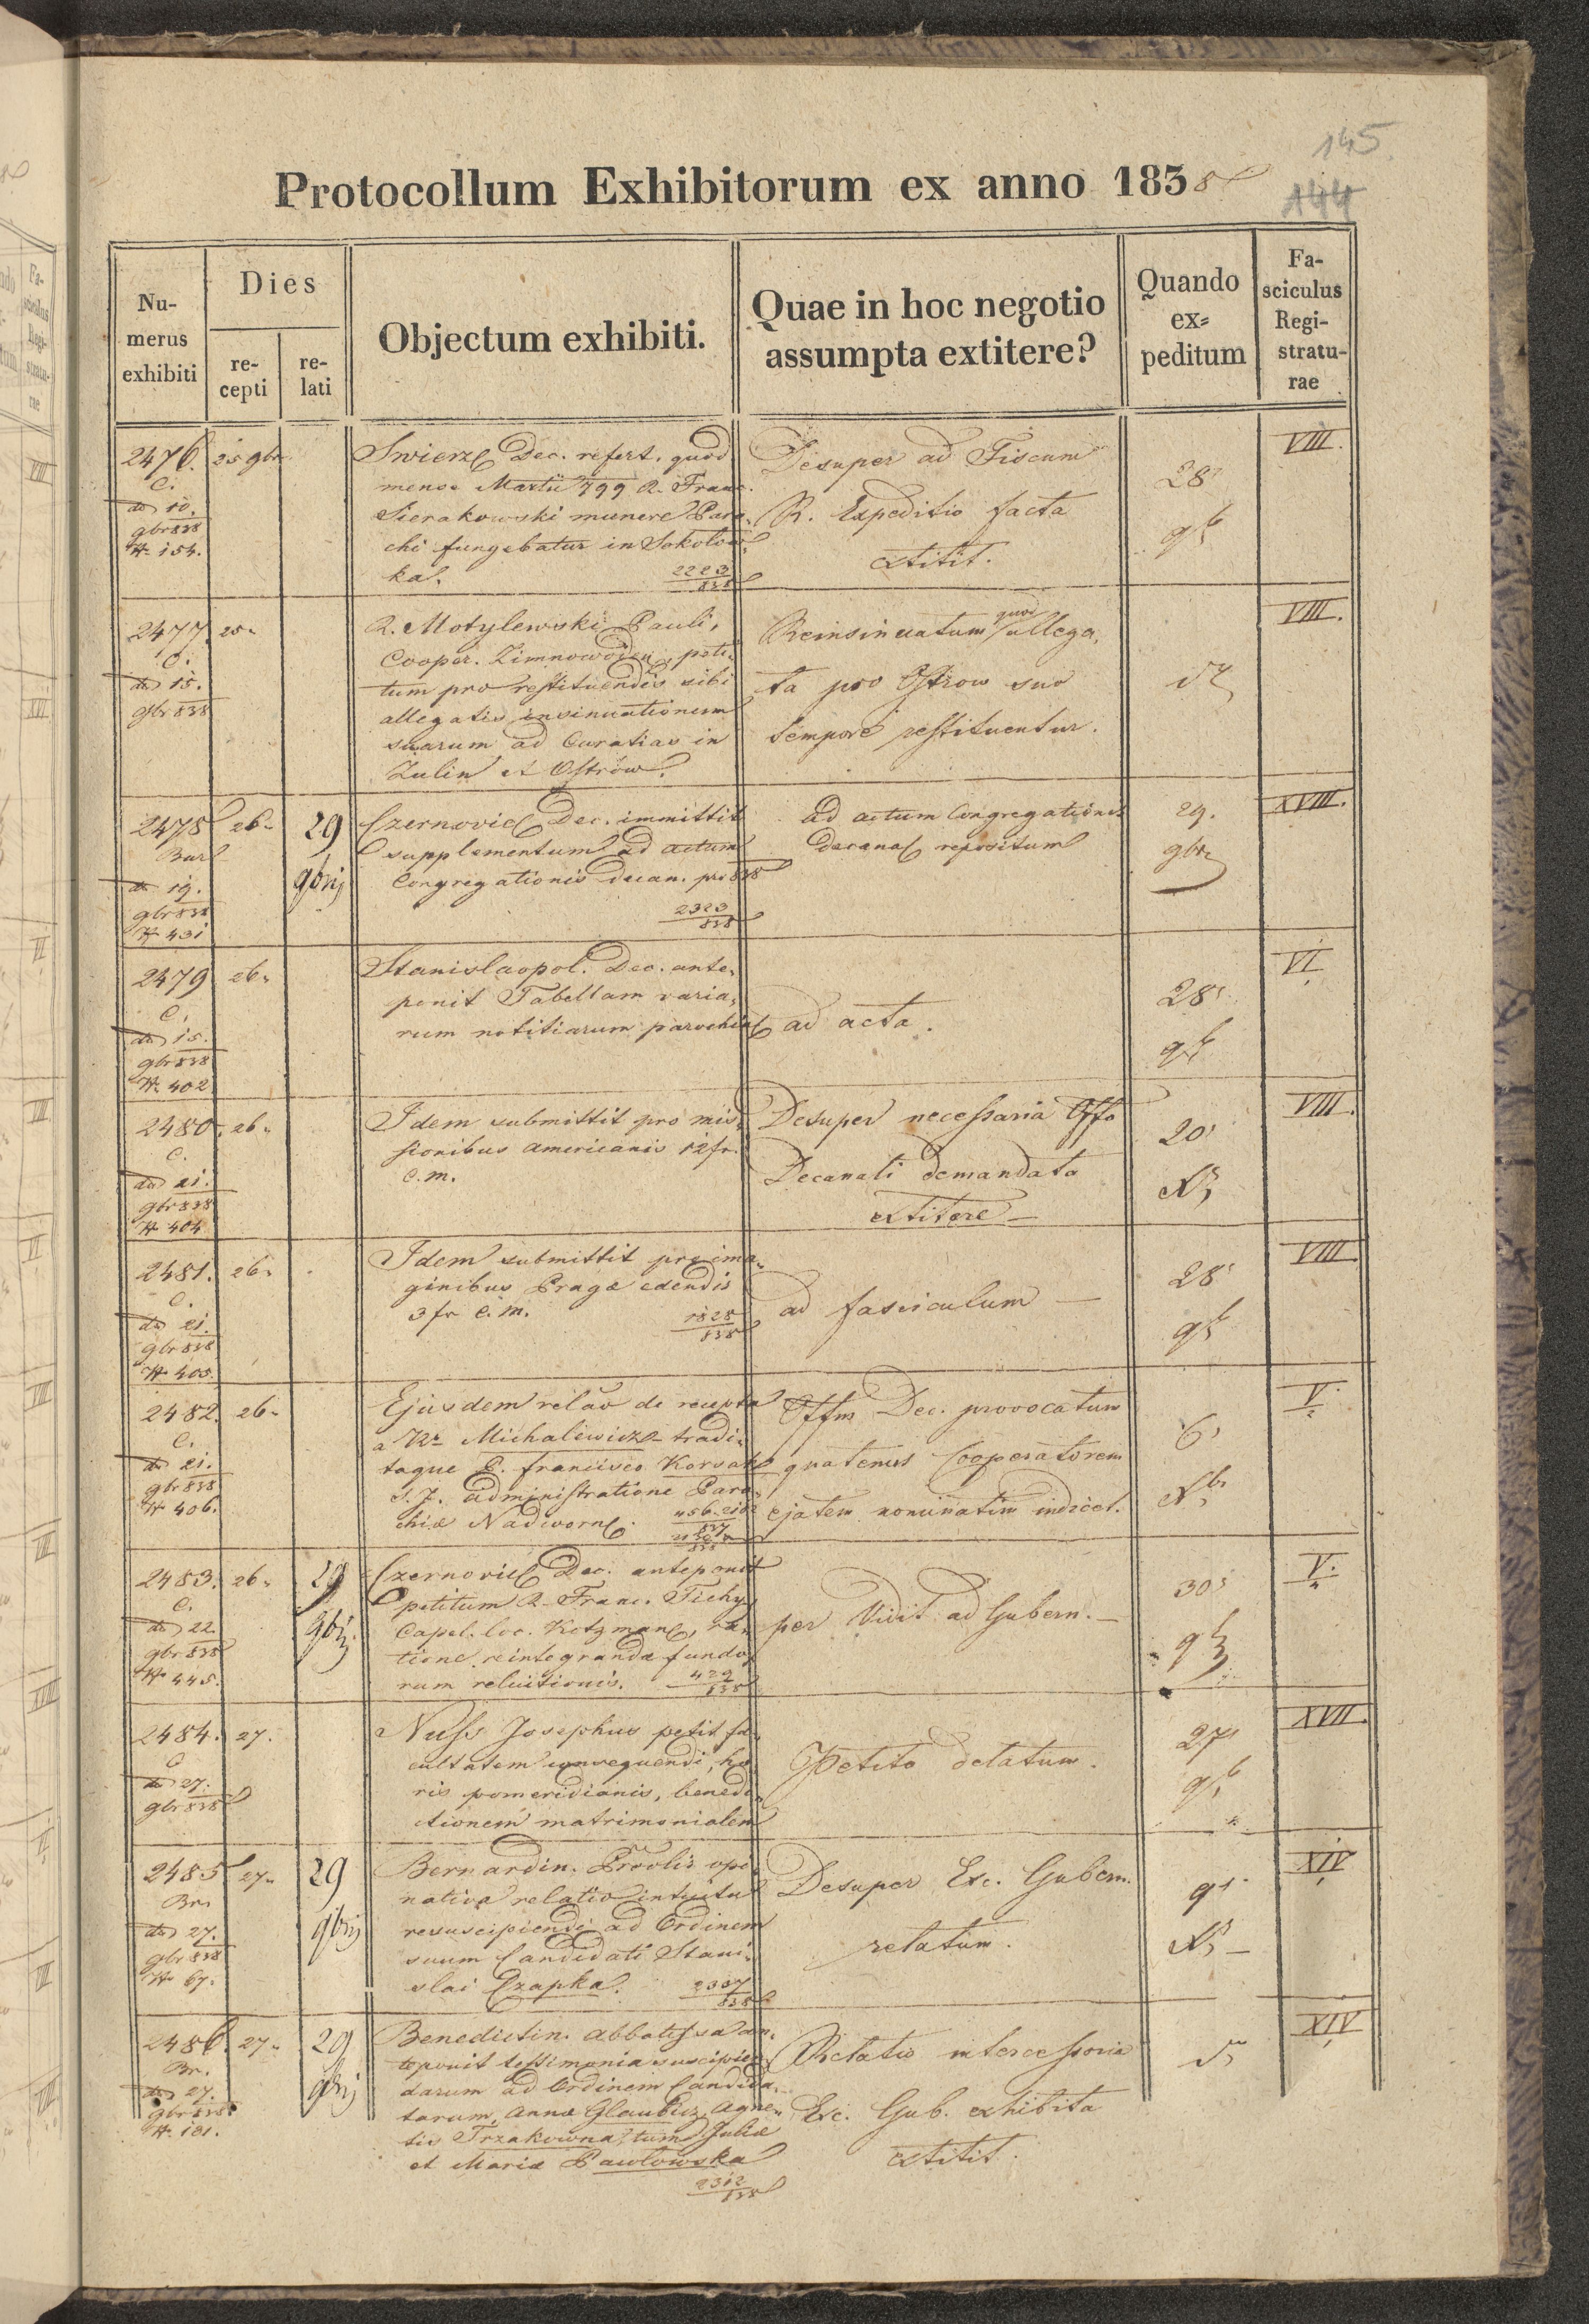 145
144
Protocollum Exhibitorum ex anno 1838
Numerus exhibiti
Dies
recepti
relati
Objectum exhibiti.
Quae in hoc negotio assumpta extitere?
Quando expeditum
Fasciculus Registraturae
2476. 25 9br
C.
dto 10.
9br 838
N. 154.
Swierz Dec. refert, quod
mense Martii 799 R. Franc.
Sierakowski munere Paro-
chi fungebatur in Sokolow-
ka.
2223
838
Desuper ad Fiscum
R. Expeditio facta
extitit.
28
9b
VIII.
2477 25.
C.
dto 15.
9br 838
R. Motylewski Pauli,
Cooper. Zimnowod. peti-
tum pro restituendis sibi
allegatis insinuationum
suarum ad Curatias in
Zulin et Ostrow.
Reinsinuatum quod allega-
ta pro Ostrow suo
tempore restituentur.
VIII.
2478 26. 29
Bur
9brij
dto 19.
9br 838
N. 431
Czernovic Dec. immittit
supplementum ad actum
Congregationis decan. pro 838
2323
838
ad actum Congregationis
decanal repositum
29.
9br
XVIII.
2479 26.
C.
dto 15.
9br 838
N. 402
Stanislaopol. Dec. ante-
ponit Tabellam varia-
rum notitiarum parochial
ad acta.
28
9b
VI.
2480. 26.
C.
dto 21.
9br 838
N. 404
Idem submittit pro mis-
sionibus americanis 12 fr.
C.m.
Desuper necessaria Offo
Decanali demandata
extitere
20
Xb
VIII.
2481. 26.
C.
dto 21.
9br 838
N. 405.
Idem submittit pro ima-
ginibus Pragae edendis
3 fr C.m.
1828
838
ad fasciculum
28
9b
VIII
2482. 26.
C.
dto 21.
9br 838
N. 406.
Ejusdem relao de recepta
a Michalewicz tradi-
taque P. Francisco Korsak
S.J. administratione Paro-
chiae Nadworn.
Offm Dec. provocatum
quatenus Cooperatorem
ejatem nominatim indicet.
6
Xbr
V.
2483. 26. 29
C.
9brij
dto 22
9br 838
N. 445.
Czernovic Dec. anteponit
petitum R. Franc. Tichy
Capel. loc. Kotzman, ra-
tione reintegrandae fundo-
rum reluitionis.
429
838
per Vidit ad Gubern.
30
9b
V.
2484. 27.
C
dto 27.
9br 838
Nuss Josephus petit fa-
cultatem consequendi, ho-
ris pomeridianis, benedi-
ctionem matrimonialem
Petito delatum.
27
9b
XVII.
2485 27. 29
Br.
9brij
dto 27.
9br 838
N. 67.
Bernardin. Provlis opi-
nativa relatio intuitu
resuscipiendi ad Ordinem
suum Candidati Stani-
slai Czapka.
2337
838
Desuper Exc. Gubern.
relatum.
9
Xb
XIV
2486. 27. 29
Br.
9brij
dto 27.
9br 838
N. 101.
Benedictin. Abbatissa an-
teponit testimonia suscipien-
darum ad Ordinem Candida-
tarum, Annae Glaubicz, Agne-
tis Trzakowna, tum Juliae
et Mariae Pawlowska
2312
838
Relatio intercessoria
Exc. Gub. exhibita
extitit.
XIV